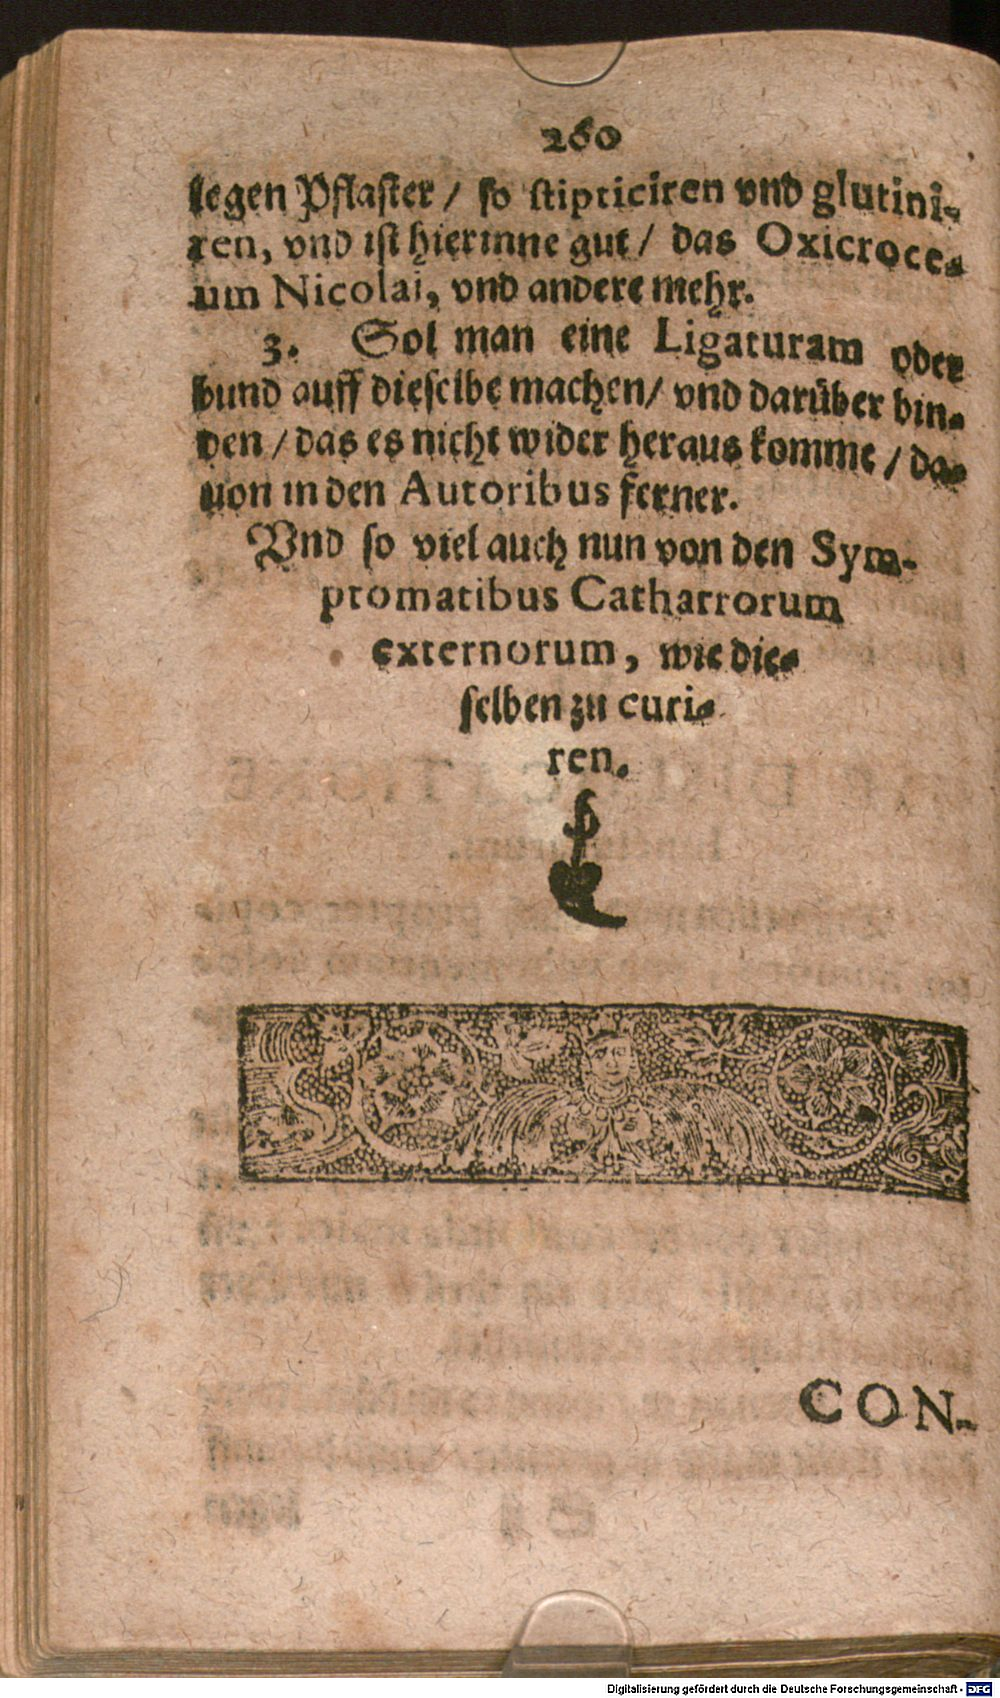 260
legen Pflaster / so stipticiren vnd glutini-
ren, vnd ist hierinne gut / das Oxicroce-
um Nicolai, vnd andere mehr.
3. Sol man eine Ligaturam oder
bund auff dieselbe machen / vnd darüber bin-
den / das es nicht wider heraus komme / da-
uon in den Autoribus ferner.
Vnd so viel auch nun von den Sym-
ptomatibus Catharrorum
externorum, wie die-
selben zu curi-
ren.
CON-
Digitalisierung gefördert durch die Deutsche Forschungsgemeinschaft - DFG